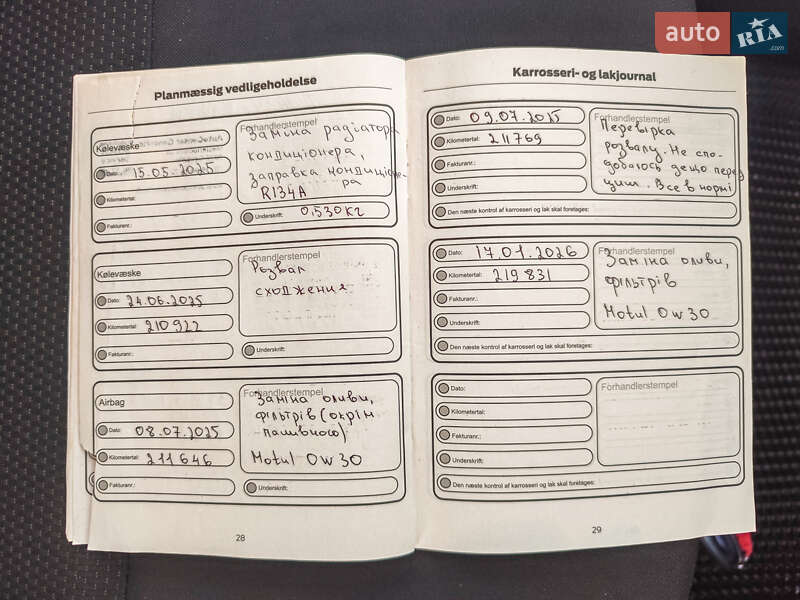 auto RIA.com
Planmæssig vedligeholdelse
Kølevæske
Forhandlerstempel
Заміна радіатора
кондиціонера,
заправка кондиціоне-
ра
R134A
Dato: 15.05.2025
Kilometertal:
Fakturanr.:
Underskrift: 0,530кг
Kølevæske
Forhandlerstempel
Розвал
сходження
Dato: 24.06.2025
Kilometertal: 210922
Fakturanr.:
Underskrift:
Airbag
Forhandlerstempel
Заміна оливи,
фільтрів (окрім
паливного)
Motul 0w30
Dato: 08.07.2025
Kilometertal: 211646
Fakturanr.:
Underskrift:
28
Karrosseri- og lakjournal
Dato: 09.07.2025
Kilometertal: 211769
Fakturanr.:
Underskrift:
Forhandlerstempel
Перевірка
розвалу. Не спо-
добалось дещо перед
цим. Все в нормі
Den næste kontrol af karrosseri og lak skal foretages:
Dato: 17.01.2026
Kilometertal: 219831
Fakturanr.:
Underskrift:
Forhandlerstempel
Заміна оливи,
фільтрів
Motul 0w30
Den næste kontrol af karrosseri og lak skal foretages:
Dato:
Kilometertal:
Fakturanr.:
Underskrift:
Forhandlerstempel
Den næste kontrol af karrosseri og lak skal foretages:
29